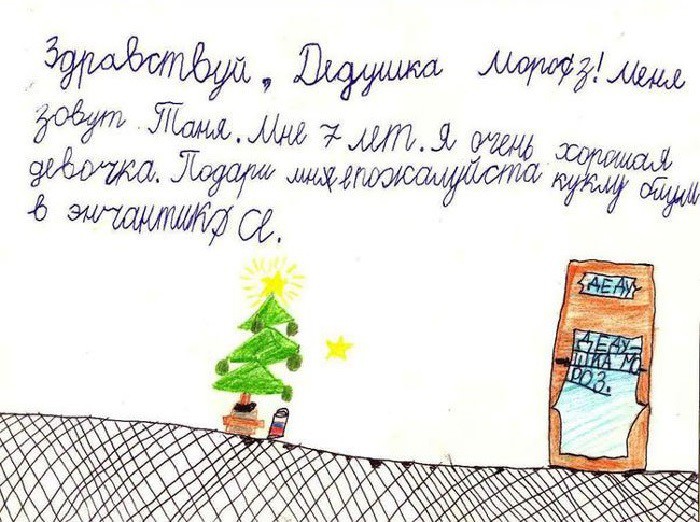 Здравствуй, Дедушка Мороз! Меня
зовут Таня. Мне 7 лет. Я очень хорошая
девочка. Подари мне пожалуйста куклу блуми
в энчантик се.
ДЕДУ
ДЕДУ-
ШКА МО
РОЗ.